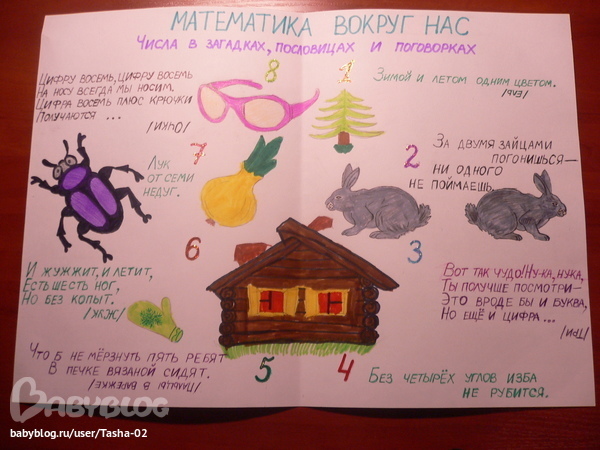 МАТЕМАТИКА ВОКРУГ НАС
ЧИСЛА В ЗАГАДКАХ, ПОСЛОВИЦАХ И ПОГОВОРКАХ
ЦИФРУ ВОСЕМЬ, ЦИФРУ ВОСЕМЬ
НА НОСУ ВСЕГДА МЫ НОСИМ.
ЦИФРА ВОСЕМЬ ПЛЮС КРЮЧКИ
ПОЛУЧАЮТСЯ ...
/ОЧКИ/
8
1
ЗИМОЙ И ЛЕТОМ ОДНИМ ЦВЕТОМ.
/ЕЛЬ/
7
ЛУК
ОТ СЕМИ
НЕДУГ.
2
ЗА ДВУМЯ ЗАЙЦАМИ
ПОГОНИШЬСЯ—
НИ ОДНОГО
НЕ ПОЙМАЕШЬ.
6
И ЖУЖЖИТ, И ЛЕТИТ,
ЕСТЬ ШЕСТЬ НОГ,
НО БЕЗ КОПЫТ.
/ЖУК/
3
ВОТ ТАК ЧУДО! НУ-КА, НУКА,
ТЫ ПОЛУЧШЕ ПОСМОТРИ—
ЭТО ВРОДЕ БЫ И БУКВА,
НО ЕЩЁ И ЦИФРА ...
/ТРИ/
ЧТО Б НЕ МЁРЗНУТЬ ПЯТЬ РЕБЯТ
В ПЕЧКЕ ВЯЗАНОЙ СИДЯТ.
/ПАЛЬЦЫ В ВАРЕЖКЕ/
5
4
БЕЗ ЧЕТЫРЁХ УГЛОВ ИЗБА
НЕ РУБИТСЯ.
BABYBLOG
babyblog.ru/user/Tasha-02